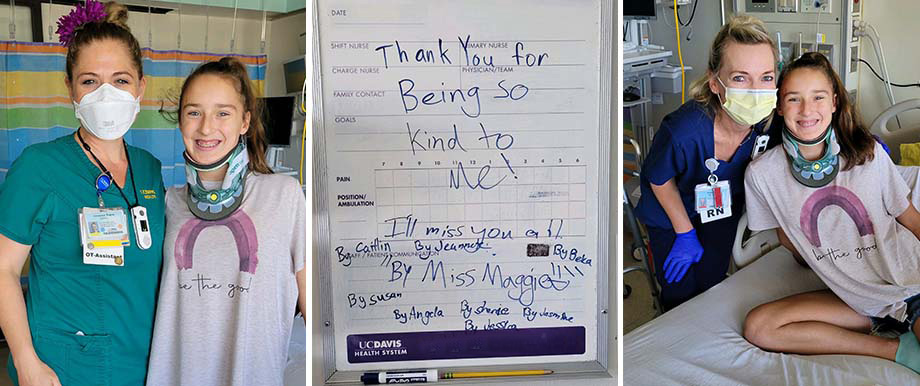 OT-Assistant
be the good
DATE
SHIFT NURSE
PRIMARY NURSE
Thank You for
CHARGE NURSE
PHYSICIAN/TEAM
FAMILY CONTACT
Being so
GOALS
Kind to
7 8 9 10 11 12 1 2 3 4 5 6
PAIN
Me!
POSITION/
AMBULATION
I'll miss you all
By Caitlin By Jeannette By Beka
STAFF / PATIENT COMMUNICATION
By Miss Maggie!!!!
By susan
By Angela By sherice By Jasmine
By Jessica
UCDAVIS
HEALTH SYSTEM
RN
be the good